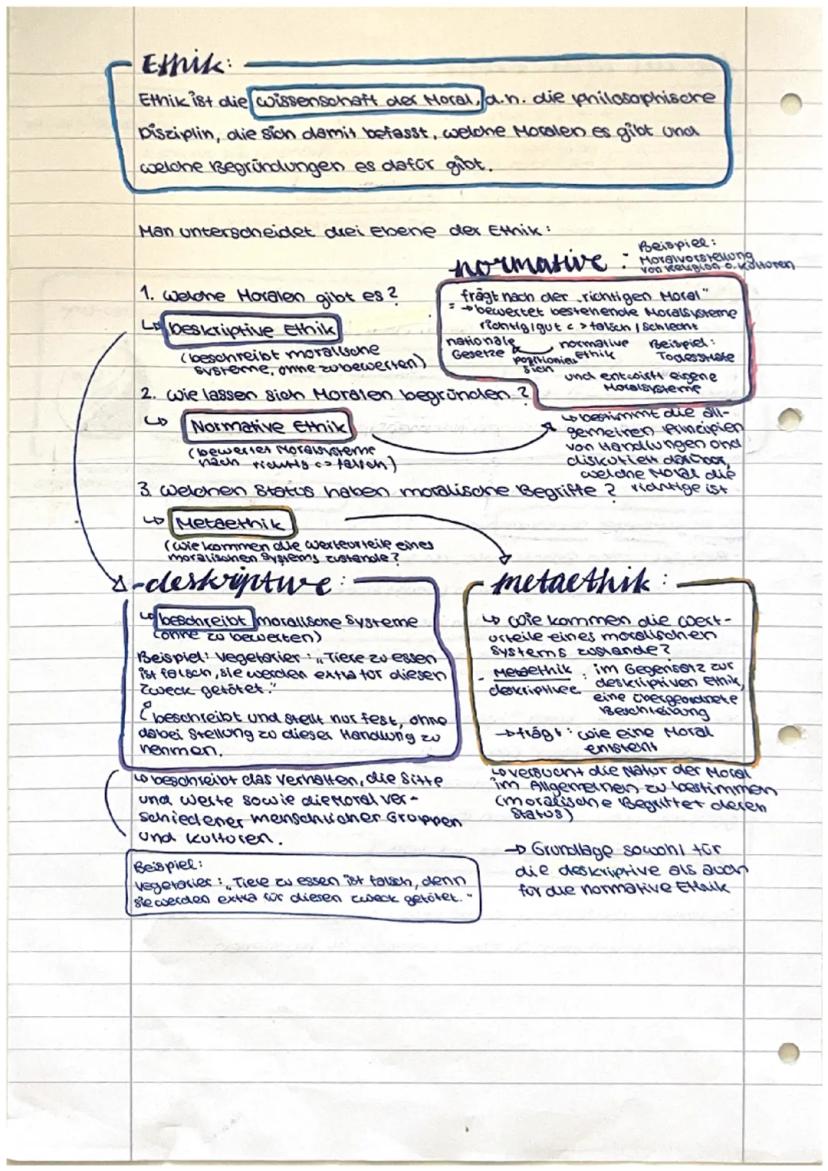 Ethik:
Ethik ist die wissenschaft der Moral, d.h. die philosophische
Disziplin, die sich damit befasst, welche Moralen es gibt und
welche Begründungen es dafür gibt.
Man unterscheidet drei Ebene der Ethik:
normative:
Beispiel:
Moralvorstellung
von Religion o. Kulturen
frägt nach der "richtigen Moral"
= → bewertet bestehende Moralsysteme
richtig/gut <-> falsch/schlecht
nationale
Gesetze
positionier
sich
normative
Ethik
Beispiel:
Todesstrafe
und entwirft eigene
Moralsysteme
↳ bestimmt die all-
gemeinen Principien
von Handlungen und
diskutiert darüber,
welche Moral die
richtige ist
1. welche Moralen gibt es?
↳ Deskriptive Ethik
(beschreibt moralische
Systeme, ohne zu bewerten)
2. wie lassen sich Moralen begründen?
↳ Normative Ethik
(bewertet Moralsysteme
nach richtig <-> falsch)
3. welchen Status haben moralische Begriffe?
↳ Metaethik
(wie kommen die Werteurteile eines
moralischen Systems zustande?
deskriptive:
↳ beschreibt moralische Systeme
(ohne zu bewerten)
Beispiel: Vegetarier: „Tiere zu essen
ist falsch, sie werden extra für diesen
Zweck getötet."
beschreibt und stellt nur fest, ohne
dabei Stellung zu dieser Handlung zu
nehmen.
↳ beschreibt das Verhalten, die Sitte
und Werte sowie die Moral ver-
schiedener menschlicher Gruppen
und Kulturen.
Beispiel:
Vegetarier: „Tiere zu essen ist falsch, denn
sie werden extra für diesen Zweck getötet."
metaethik:
↳ wie kommen die Wert-
urteile eines moralischen
Systems zustande?
- Metaethik
deskriptive
: im Gegensatz zur
deskriptiven Ethik,
eine übergeordnete
Beschreibung
→ frägt: wie eine Moral
entsteht
↳ versucht die Natur der Moral
im Allgemeinen zu bestimmen
(moralische Begriffe deren
Status)
→ Grundlage sowohl für
die deskriptive als auch
für die normative Ethik